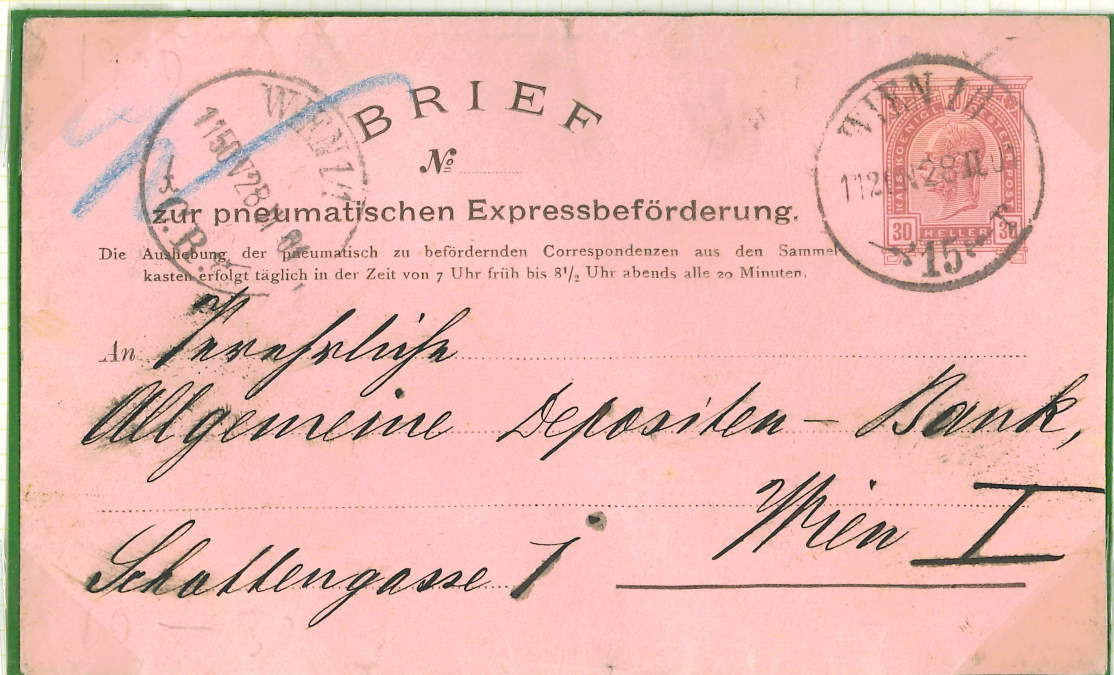 BRIEF
№
zur pneumatischen Expressbeförderung.
Die Aushebung der pneumatisch zu befördernden Correspondenzen aus den Sammel-
kasten erfolgt täglich in der Zeit von 7 Uhr früh bis 8½ Uhr abends alle 20 Minuten.
WIEN 1/1
1150V28
WIEN
28 II
15
KAIS. KOENIGL. OESTERR. POST
30 HELLER 30
An
Allgemeine Depositen-Bank,
Wien I
Schottengasse 1